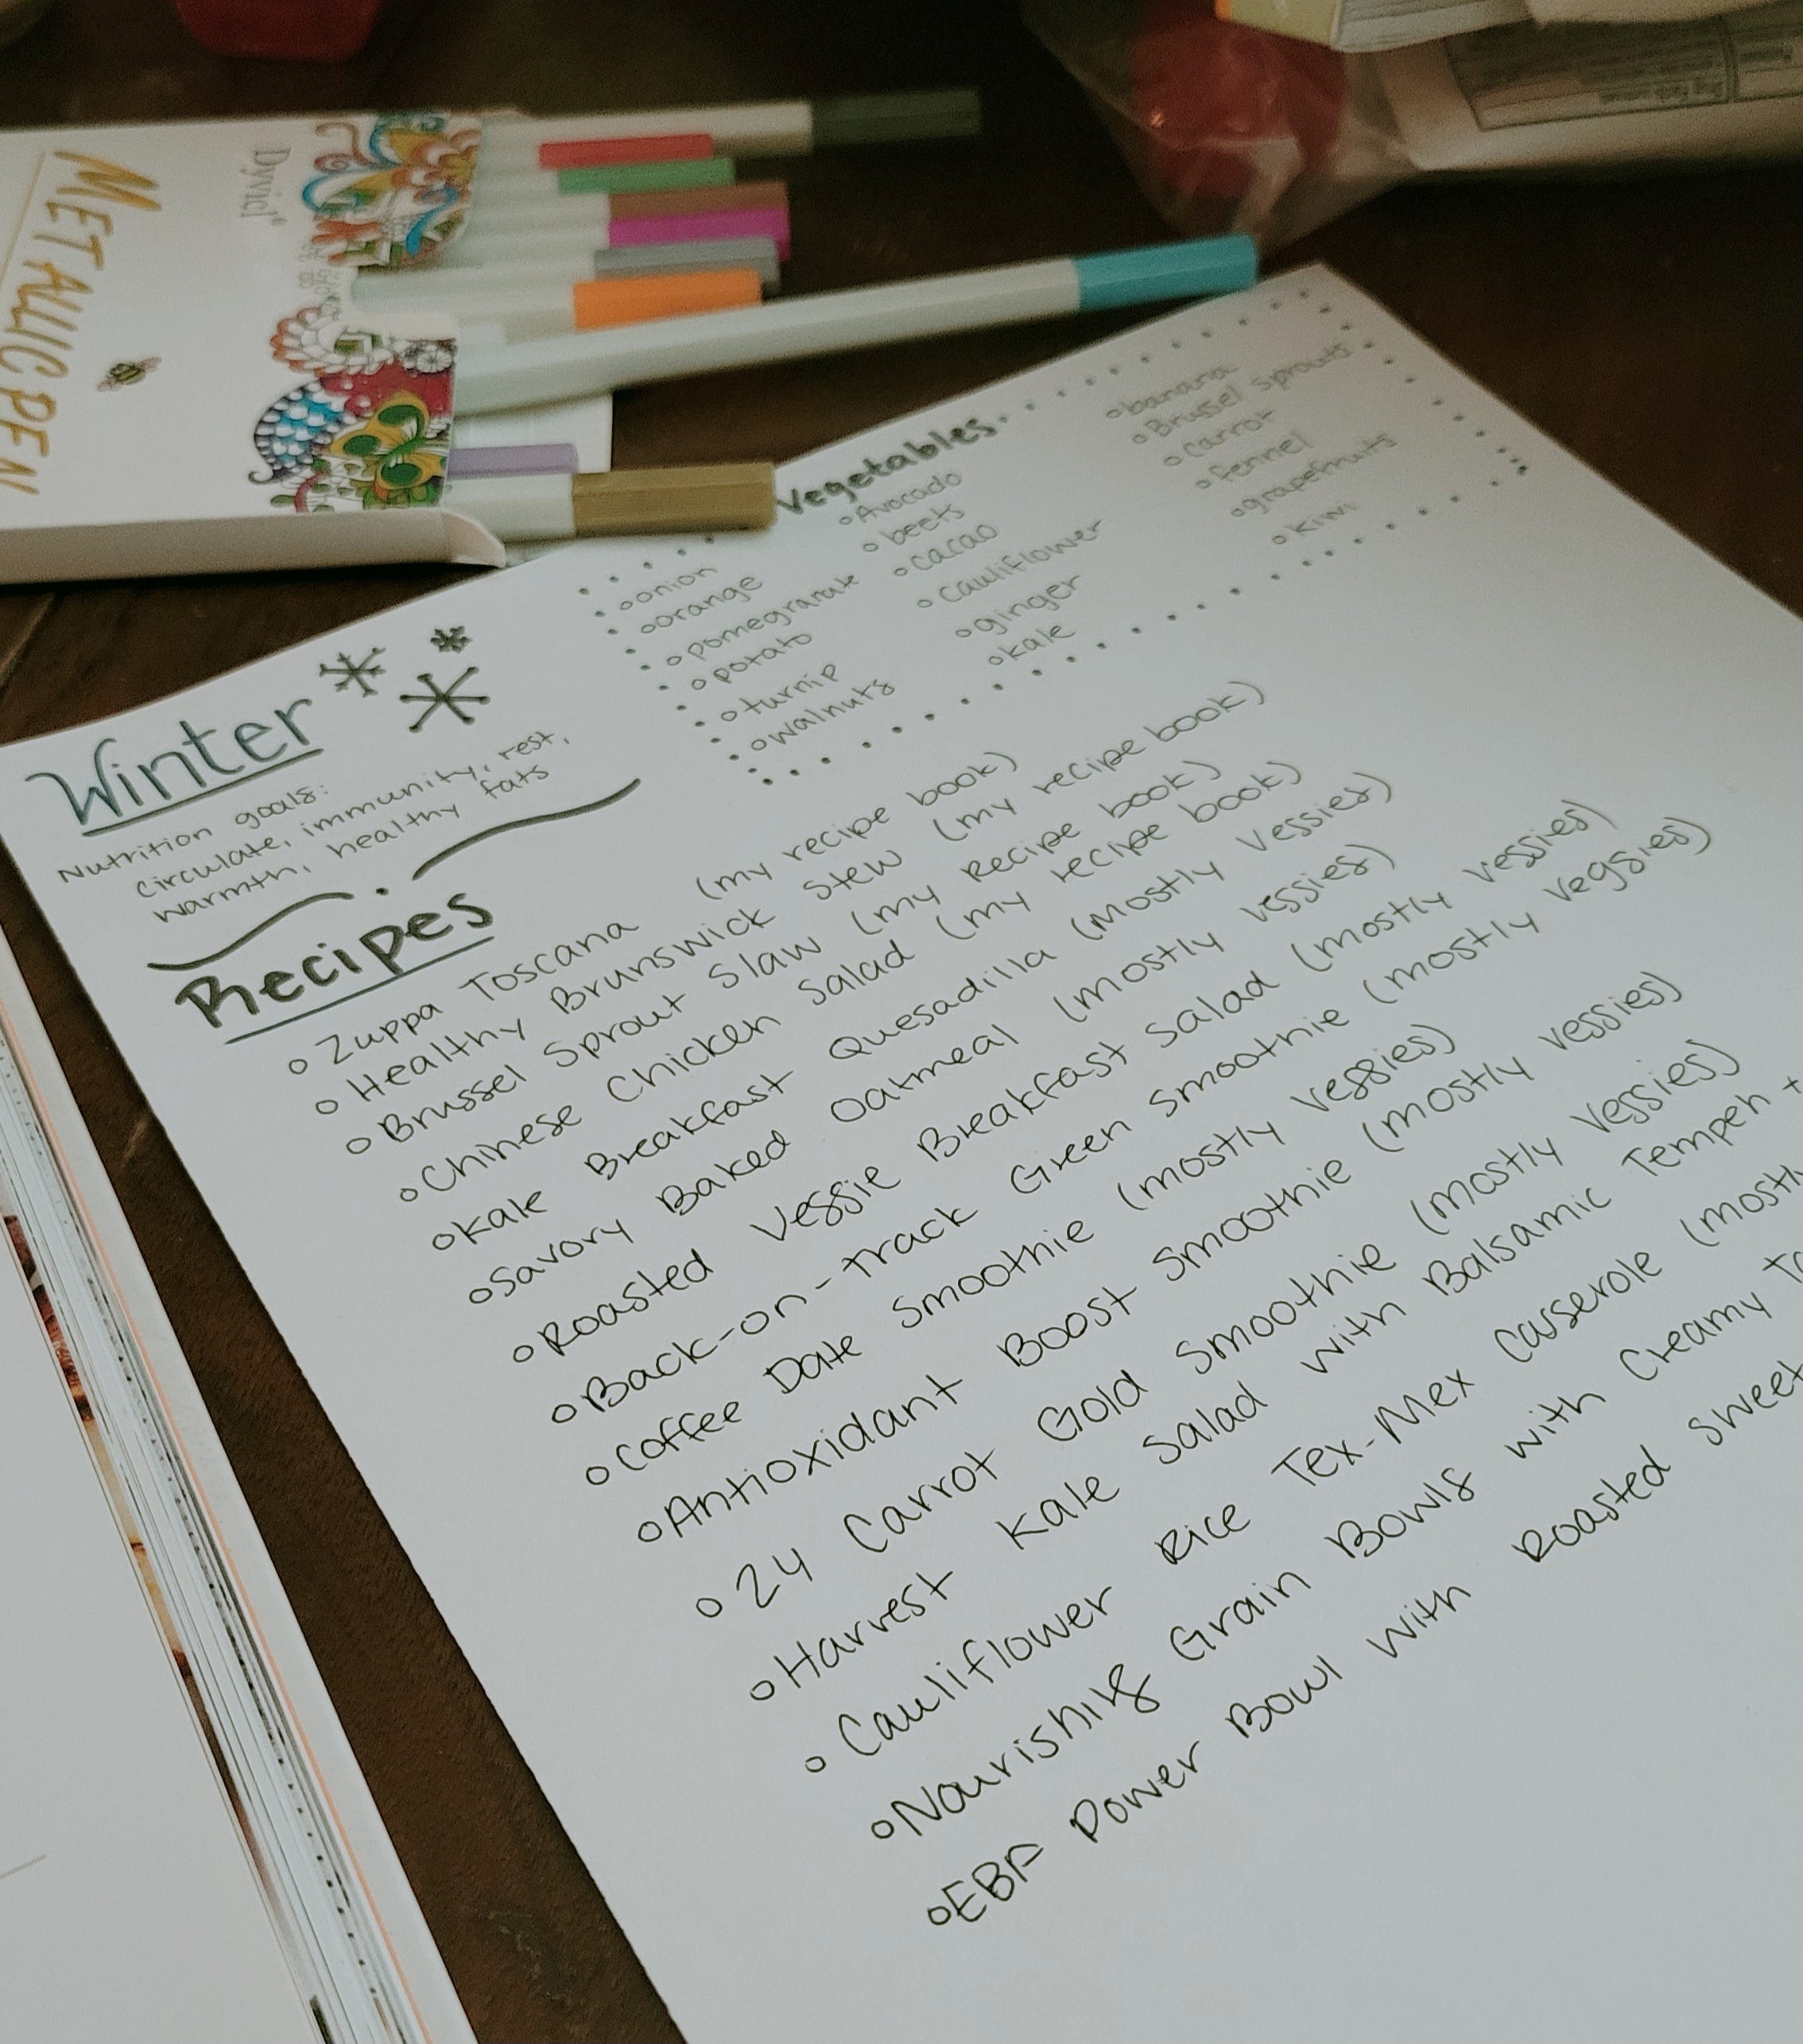 METALLIC PEN
Dyvicl
Winter
Nutrition goals:
circulate, immunity, rest,
warmth, healthy fats
Vegetables
onion
orange
pomegranate
potato
turnip
walnuts
Avocado
beets
cacao
cauliflower
ginger
kale
banana
Brussel sprouts
carrot
fennel
grapefruits
kiwi
Recipes
Zuppa Toscana (my recipe book)
Healthy Brunswick Stew (my recipe book)
Brussel Sprout Slaw (my recipe book)
Chinese Chicken Salad (my recipe book)
Kale Breakfast Quesadilla (mostly veggies)
Savory Baked Oatmeal (mostly veggies)
Roasted Veggie Breakfast Salad (mostly veggies)
Back-on-Track Green Smoothie (mostly veggies)
Coffee Date Smoothie (mostly veggies)
Antioxidant Boost Smoothie (mostly veggies)
24 Carrot Gold Smoothie (mostly veggies)
Harvest Kale Salad with Balsamic Tempeh +
Cauliflower Rice Tex-Mex Casserole (mostly
Nourishing Grain Bowls with Creamy
EBF Power Bowl with Roasted Sweet